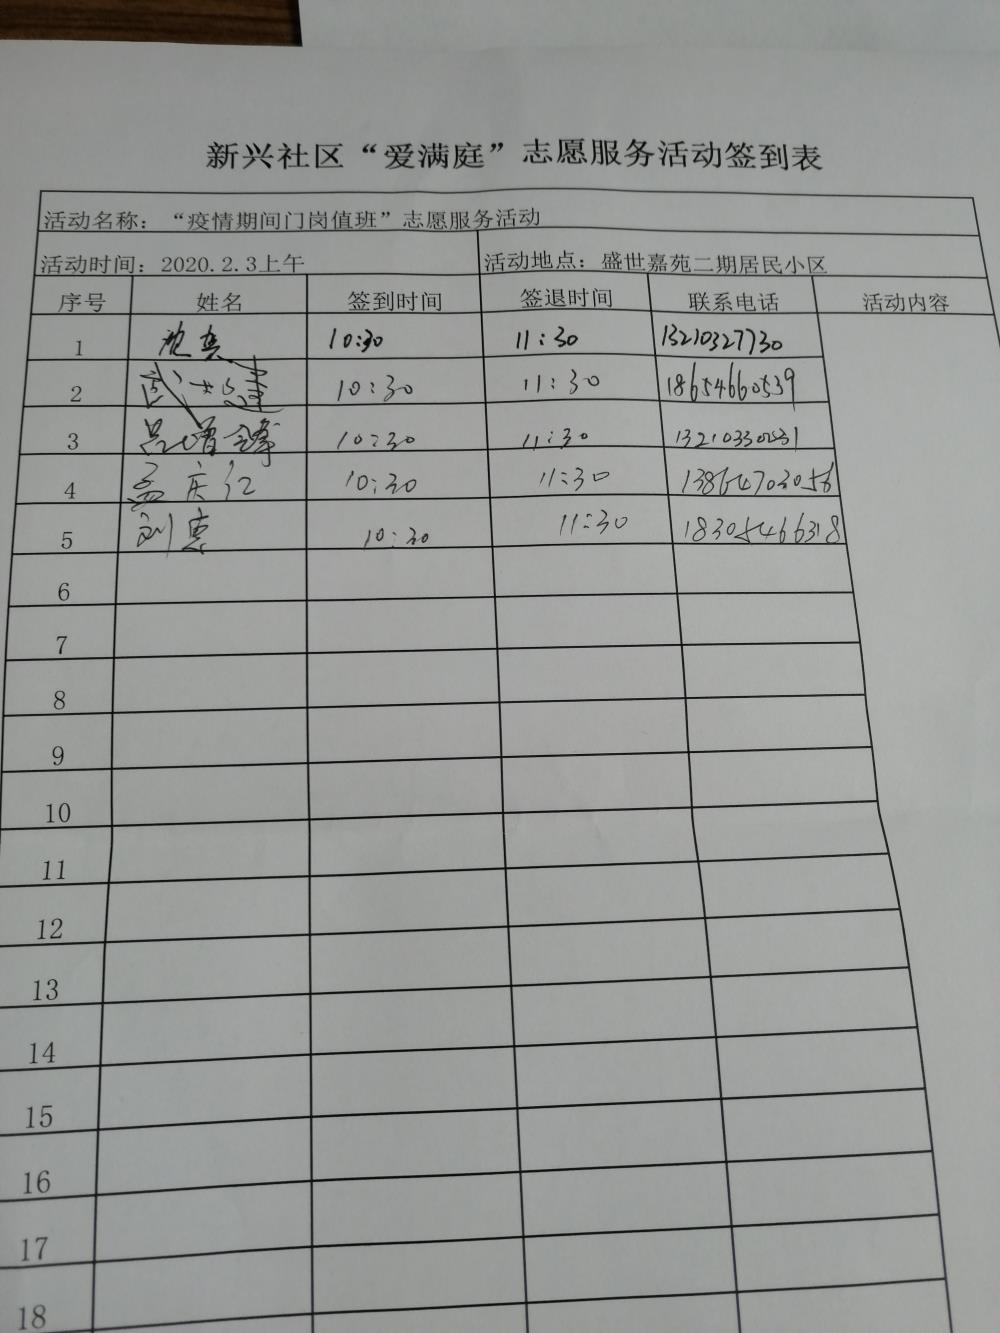 新兴社区“爱满庭”志愿服务活动签到表
活动名称：“疫情期间门岗值班”志愿服务活动
活动时间：2020.2.3上午 活动地点：盛世嘉苑二期居民小区
序号 姓名 签到时间 签退时间 联系电话 活动内容
1 10:30 11:30 13210327730
2 10:30 11:30 18654660539
3 吕增峰 10:30 11:30
4 孟庆仁 10:30 11:30 13864703056
5 刘惠 10:30 11:30 18305466318
6
7
8
9
10
11
12
13
14
15
16
17
18